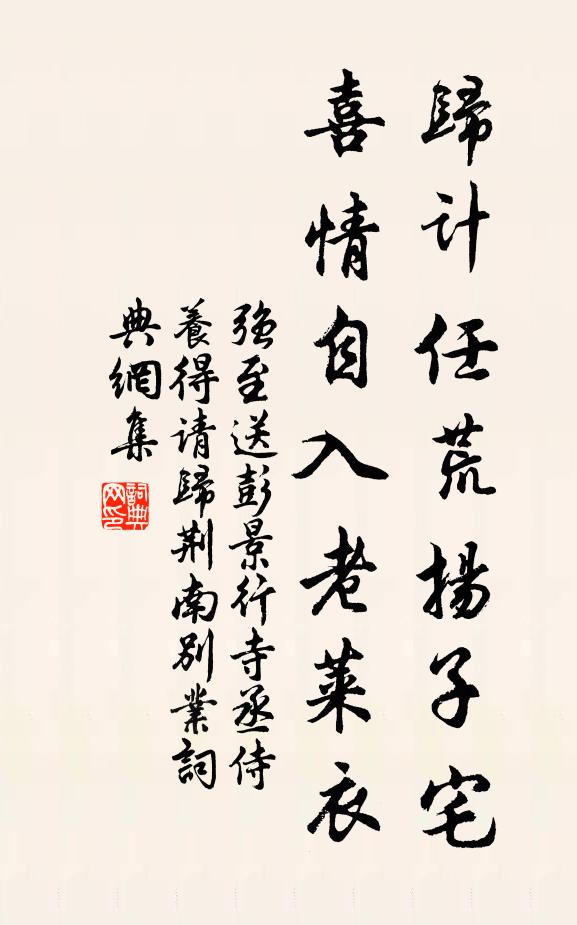 歸計任荒揚子宅
喜情自入老萊衣
强至送彭景行寺丞侍
養得请歸荆南别業詞
典網集
詞典網印